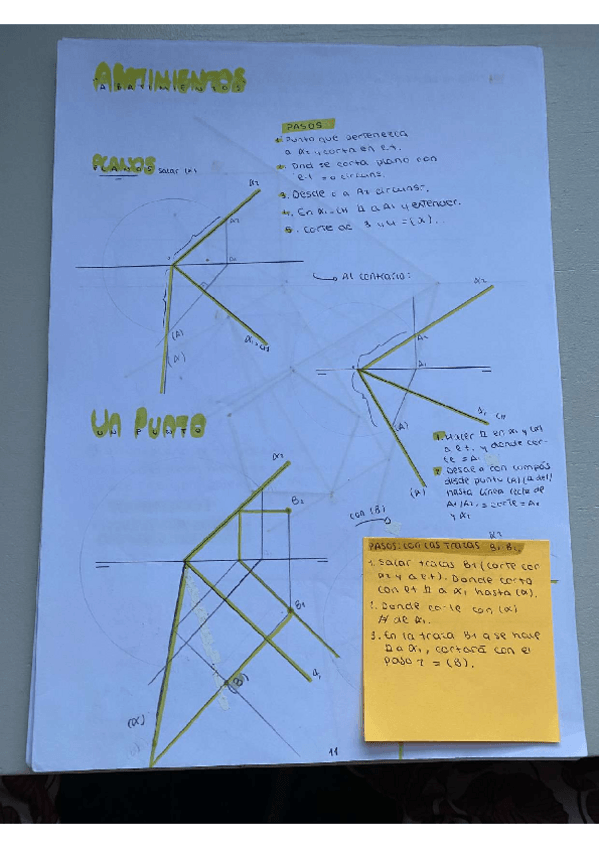 ABATIMIENTOS
ABATIMIENTOS
PLANOS sacar (α)
PASOS:
1. Punto que pertenezca
a α2 y corta en l.t.
2. Dnd se corta plano con
l.t = o circuns.
3. Desde o a A2 circuns.
4. En α1 = CH ⊥ a A1 y extender.
5. Corte de 3 y 4 = (A).
α2
A2
A1
(A)
(α)
α1 = CH
Al contrario:
α2
A2
A1
(A)
(α)
1. Hacer ⊥ en α1 y (α)
a l.t. y donde cor-
te = A1
2. Desde o con compás
desde punto (A)
hasta línea recta de
y α2
UN PUNTO
UN PUNTO
α2
B2
B1
(B)
α1
(α)
con (B)
PASOS: CON LAS TRAZAS B1 B2
1. Sacar trazas B1 (corte con
α2 y a l.t). Donde corta
con l.t ⊥ a α1 hasta (α).
2. Donde corte con (α)
// de α1.
3. En la traza B1 q se hace
⊥ a α1, cortará con el
paso 2 = (B).
11